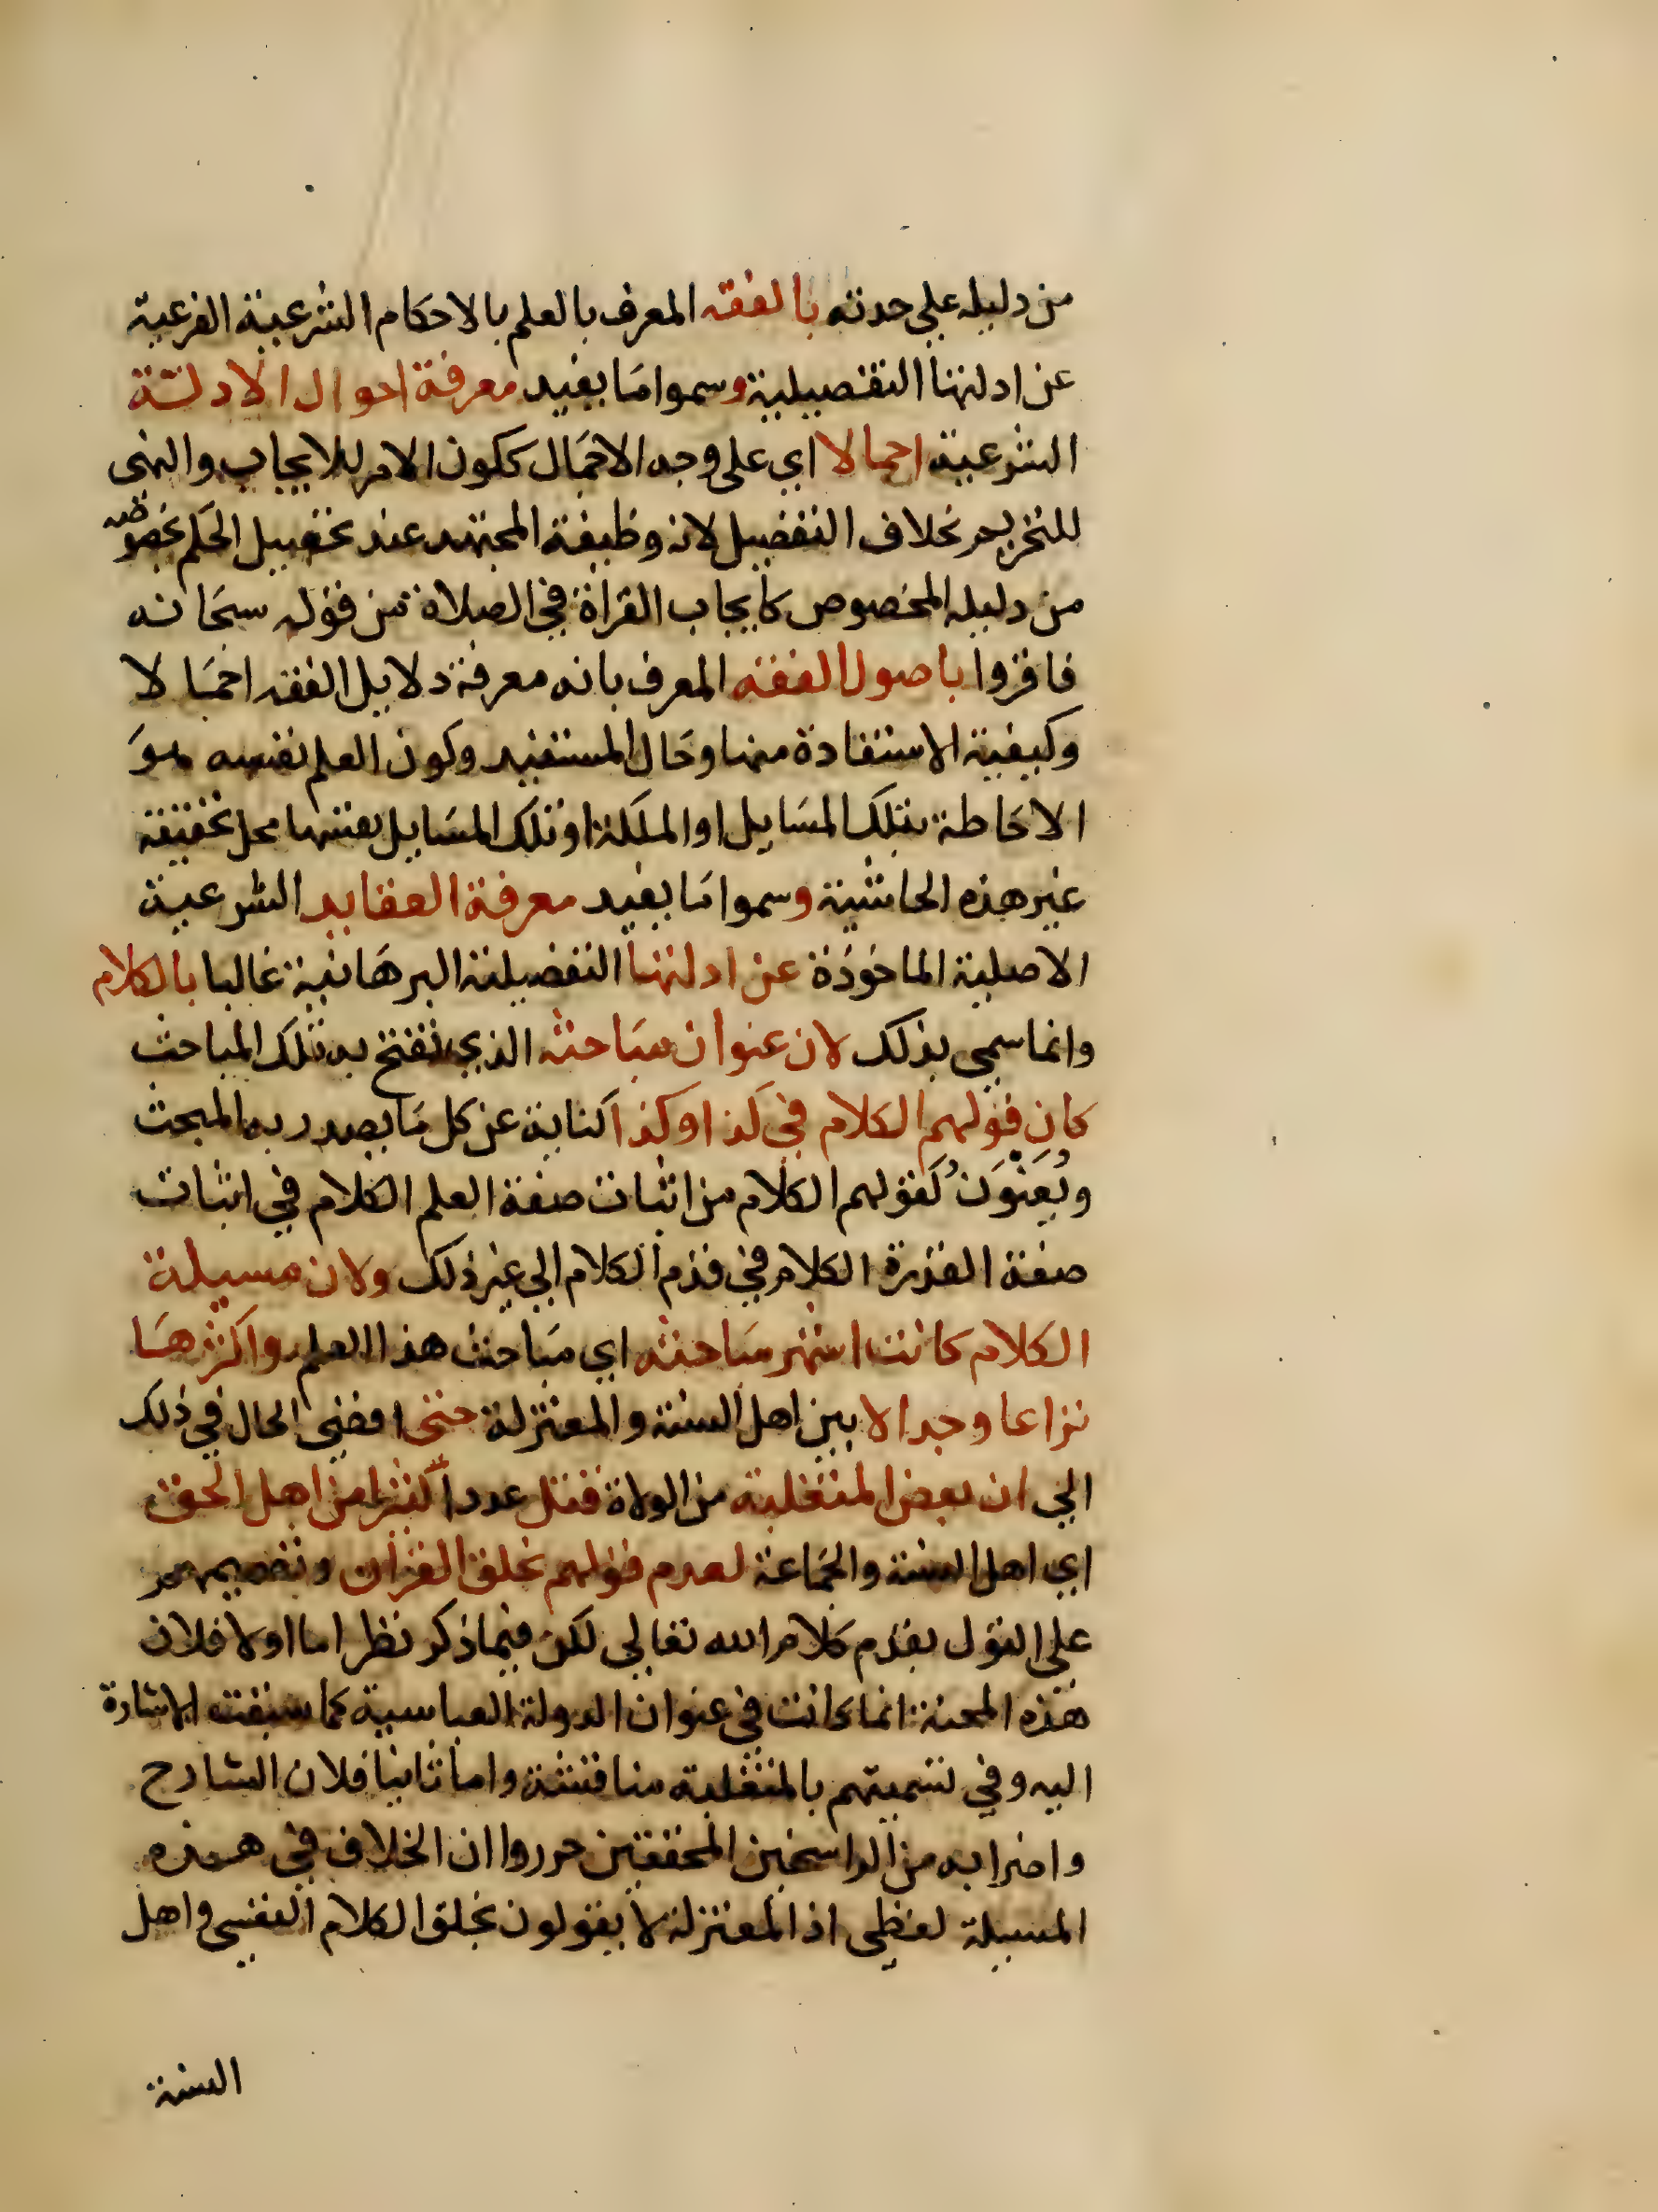 من دليله علي حدته بالفقه المعرف بالعلم بالاحكام الشرعية الفرعية
عن ادلتها التفصيلية وسموا ما يفيد معرفة احوال الادلة
الشرعية اجمالا اي على وجه الاجمال ككون الامر للايجاب والنهى
للتحريم بخلاف التفصيل لانه وظيفة المجتهد عند تحصيل الحكم بخصوصه
من دليله المخصوص كايجاب القراة في الصلاة من قوله سبحانه
فاقروا باصول الفقه المعرف بانه معرفة دلايل الفقه اجمالا
وكيفية الاستفادة منها وحال المستفيد وكون العلم نفسه هو
الاحاطة بتلك المسايل او الملكة او تلك المسايل بعينها محل تحقيقه
غير هذه الحاشية وسموا ما يفيد معرفة العقايد الشرعية
الاصلية الماخوذة عن ادلتها التفصيلية البرهانية غالبا بالكلام
وانما سمي بذلك لان عنوان مباحثه الذي تفتح به تلك المباحث
كان قولهم الكلام في كذا وكذا كناية عن كل ما يصدر به المبحث
ويُعَنْوَنُ كقولهم الكلام من اثبات صفة العلم الكلام في اثبات
صفة القدرة الكلام في قدم الكلام الي غير ذلك ولان مسيلة
الكلام كانت اشهر مباحثه اي مباحث هذا العلم واكثرها
نزاعا وجدالا بين اهل السنة والمعتزلة حتى افضي الحال في ذلك
الي ان بعض المتغلبة من الولاة قتل عددا كثيرا من اهل الحق
اي اهل السنة والجماعة لعدم قولهم بخلق القران وتصميمهم
علي القول بقدم كلام الله تعالي لكن فيما ذكر نظر اما اولا فلان
هذه المحنة انما كانت في عنوان الدولة العباسية كما سبقت الاشارة
اليه وفي تسميتهم بالمتغلبة مناقشة واما ثانيا فلان الشارح
واضرابه من الراسخين المحققين حرروا ان الخلاف في هذه
المسيلة لفظى اذ المعتزلة لا يقولون بخلق الكلام النفسي واهل
السنة